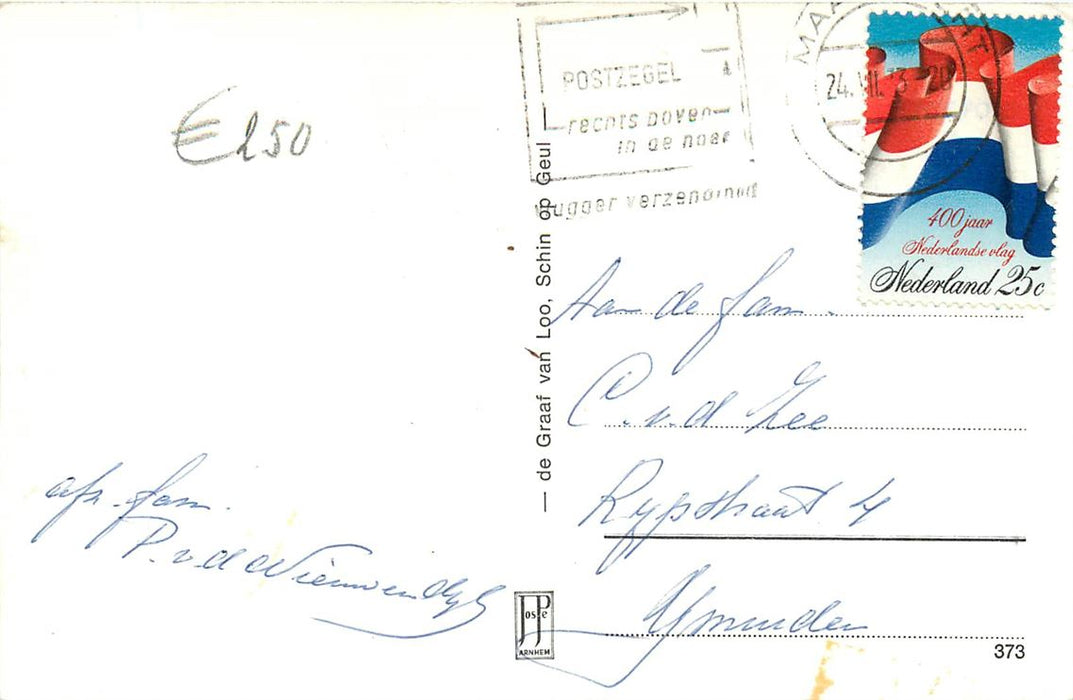 € 250
POSTZEGEL
rechts boven
in de hoek
vlugger verzending
MAA
24.VII.73 20
400 jaar
Nederlandse vlag
Nederland 25c
— de Graaf van Loo, Schin op Geul —
Aan de fam.
C. v.d Zee
Rijpstraat 4
IJmuiden
afz. fam.
P. v.d Nieuwendijk
JosPé
ARNHEM
373